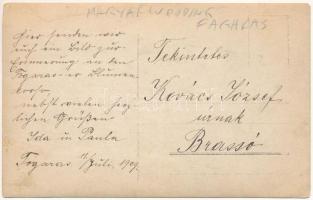 MAGYAR WEDDING
FAGARAS
Hier senden wir
euch ein Bild zur
Erinnerung an den
Fogaras-er Blumen
korso,
nebst vielen herz
lichen Grüßen
Ida u Paula
Fogaras 11/Juli. 1909.
Tekintetes
Kovács József
úrnak
Brassó